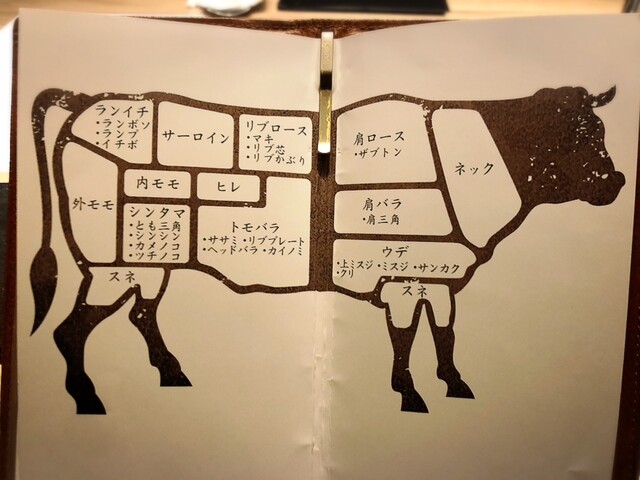 ランイチ
・ランボソ
・ランプ
・イチボ
サーロイン
リブロース
・マキ
・リブ芯
・リブかぶり
外モモ
内モモ
ヒレ
シンタマ
・とも三角
・シンシン
・カメノコ
・ツチノコ
トモバラ
・ササミ ・リブプレート
・ヘッドバラ ・カイノミ
スネ
肩ロース
・ザブトン
ネック
肩バラ
・肩三角
ウデ
・上ミスジ ・ミスジ ・サンカク
・クリ
スネ